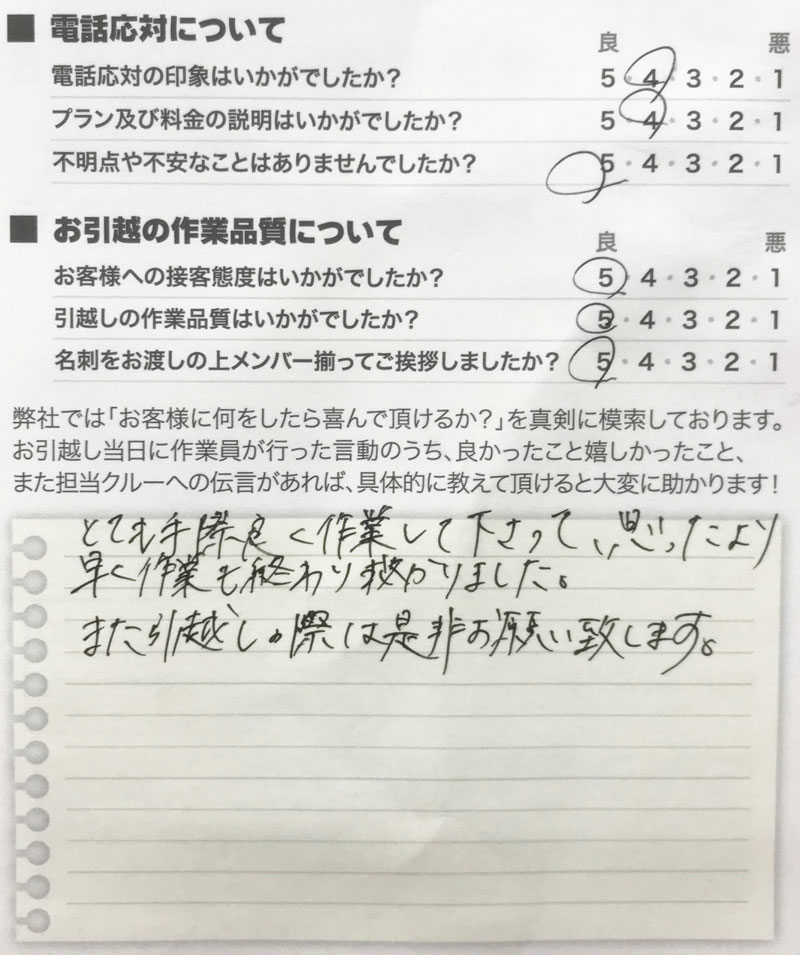 ■ 電話応対について
良 悪
電話応対の印象はいかがでしたか? 5・4・3・2・1
プラン及び料金の説明はいかがでしたか? 5・4・3・2・1
不明点や不安なことはありませんでしたか? 5・4・3・2・1
■ お引越の作業品質について
良 悪
お客様への接客態度はいかがでしたか? 5・4・3・2・1
引越しの作業品質はいかがでしたか? 5・4・3・2・1
名刺をお渡しの上メンバー揃ってご挨拶しましたか? 5・4・3・2・1
弊社では「お客様に何をしたら喜んで頂けるか?」を真剣に模索しております。
お引越し当日に作業員が行った言動のうち、良かったこと嬉しかったこと、
また担当クルーへの伝言があれば、具体的に教えて頂けると大変に助かります!
とても手際良く作業して下さって、思ったより
早く作業も終わり助かりました。
また引越しの際は是非お願い致します。